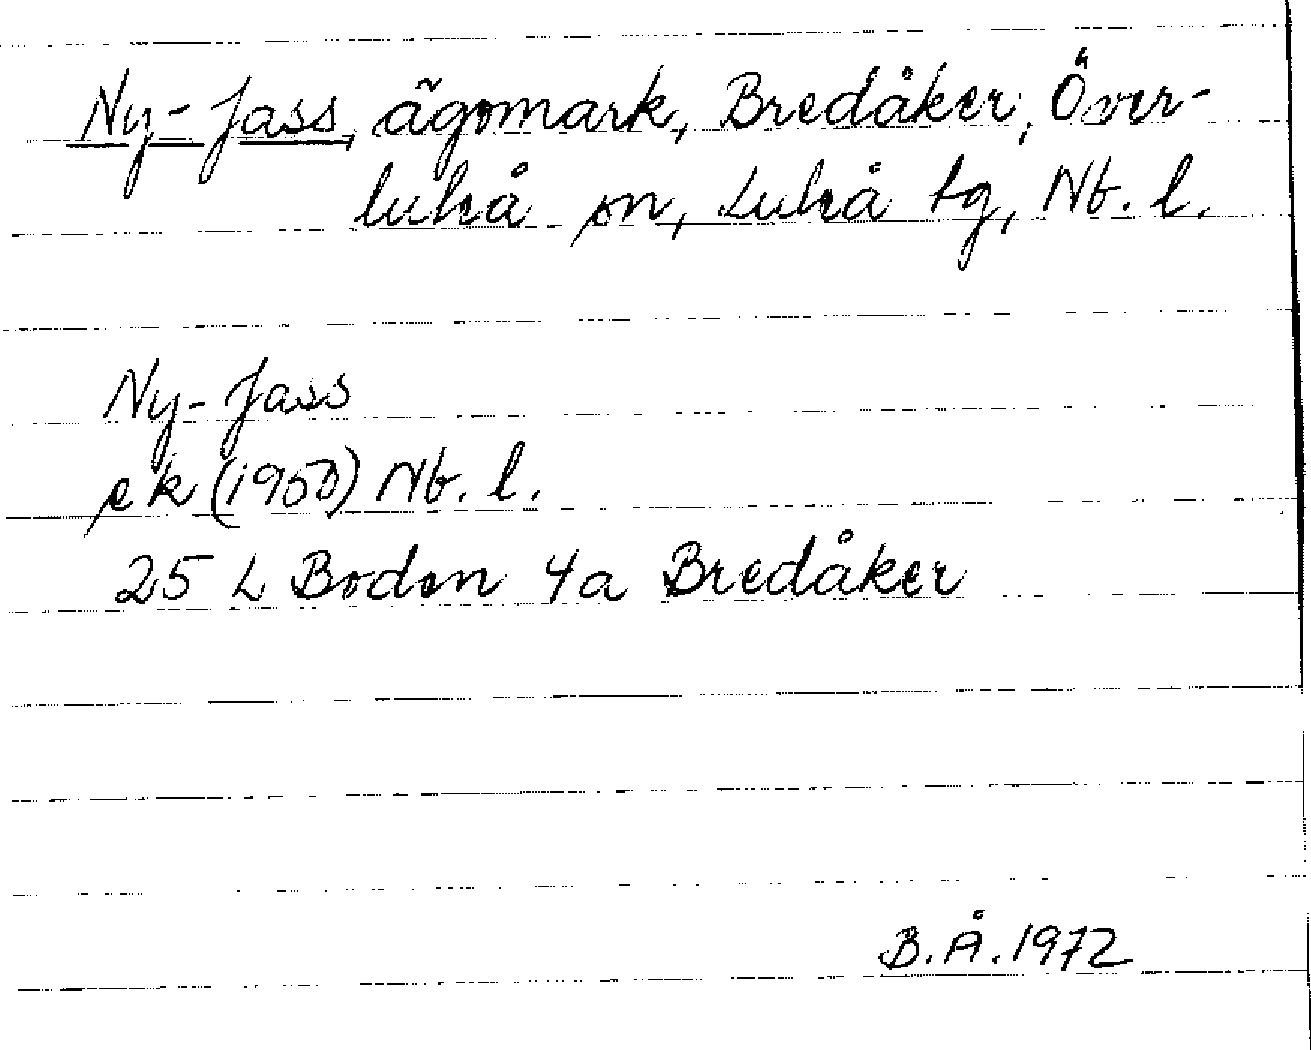 Ny-Jass, ägomark, Bredåker, Över-
luleå sn, Luleå tg, Nb. l.
Ny-Jass
ek (1950) Nb. l.
25 L Boden 4a Bredåker
B.Å.1972